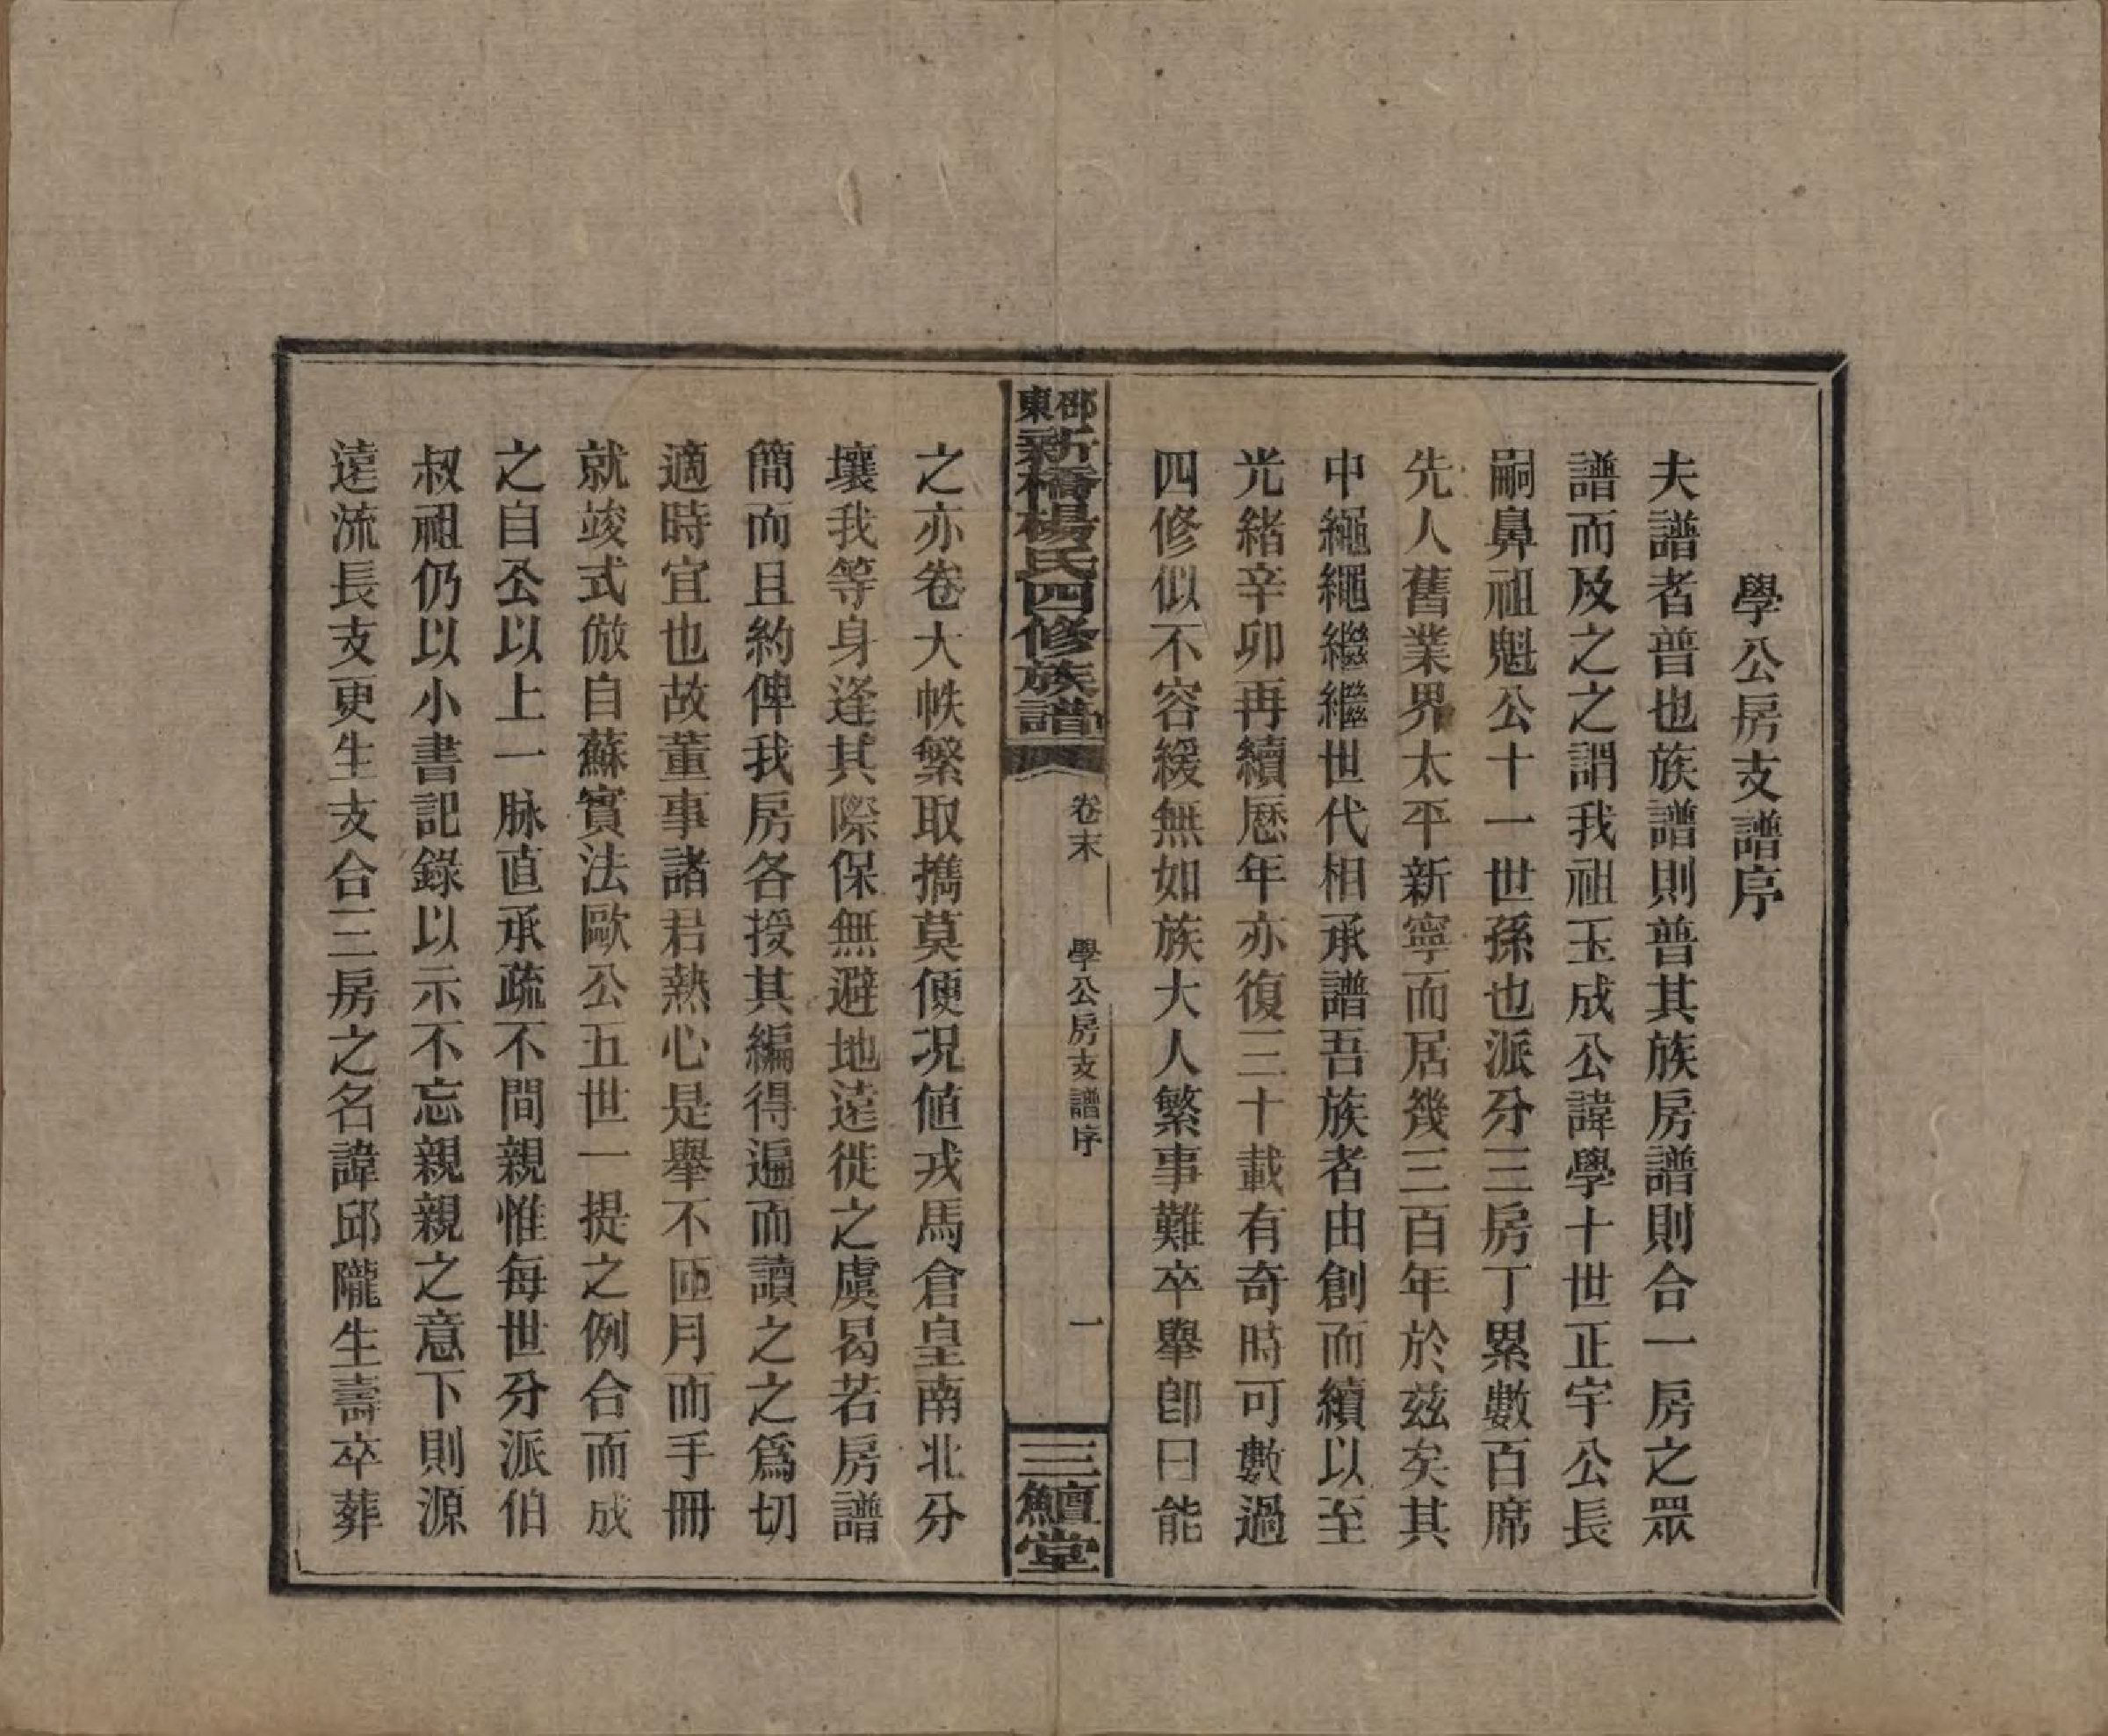 學公房支譜序
夫譜者普也族譜則普其族房譜則合一房之眾
譜而及之之謂我祖玉成公諱學十世正宇公長
嗣鼻祖魁公十一世孫也派分三房丁累數百席
先人舊業界太平新寧而居幾三百年於兹矣其
中繩繩繼繼世代相承譜吾族者由創而續以至
光緒辛卯再續歷年亦復三十載有奇時可數過
四修似不容緩無如族大人繁事難卒舉卽曰能
邵東新橋楊氏四修族譜
卷末 學公房支譜序 一
三鱣堂
之亦卷大帙繁取攜莫便况値戎馬倉皇南北分
壤我等身逢其際保無避地遠徙之虞曷若房譜
簡而且約俾我房各授其編得遍而讀之之爲切
適時宜也故董事諸君熱心是舉不匝月而手冊
就竣式倣自蘇實法歐公五世一提之例合而成
之自公以上一脉直承疏不間親惟每世分派伯
叔祖仍以小書記錄以示不忘親親之意下則源
遠流長支更生支合三房之名諱邱隴生壽卒葬